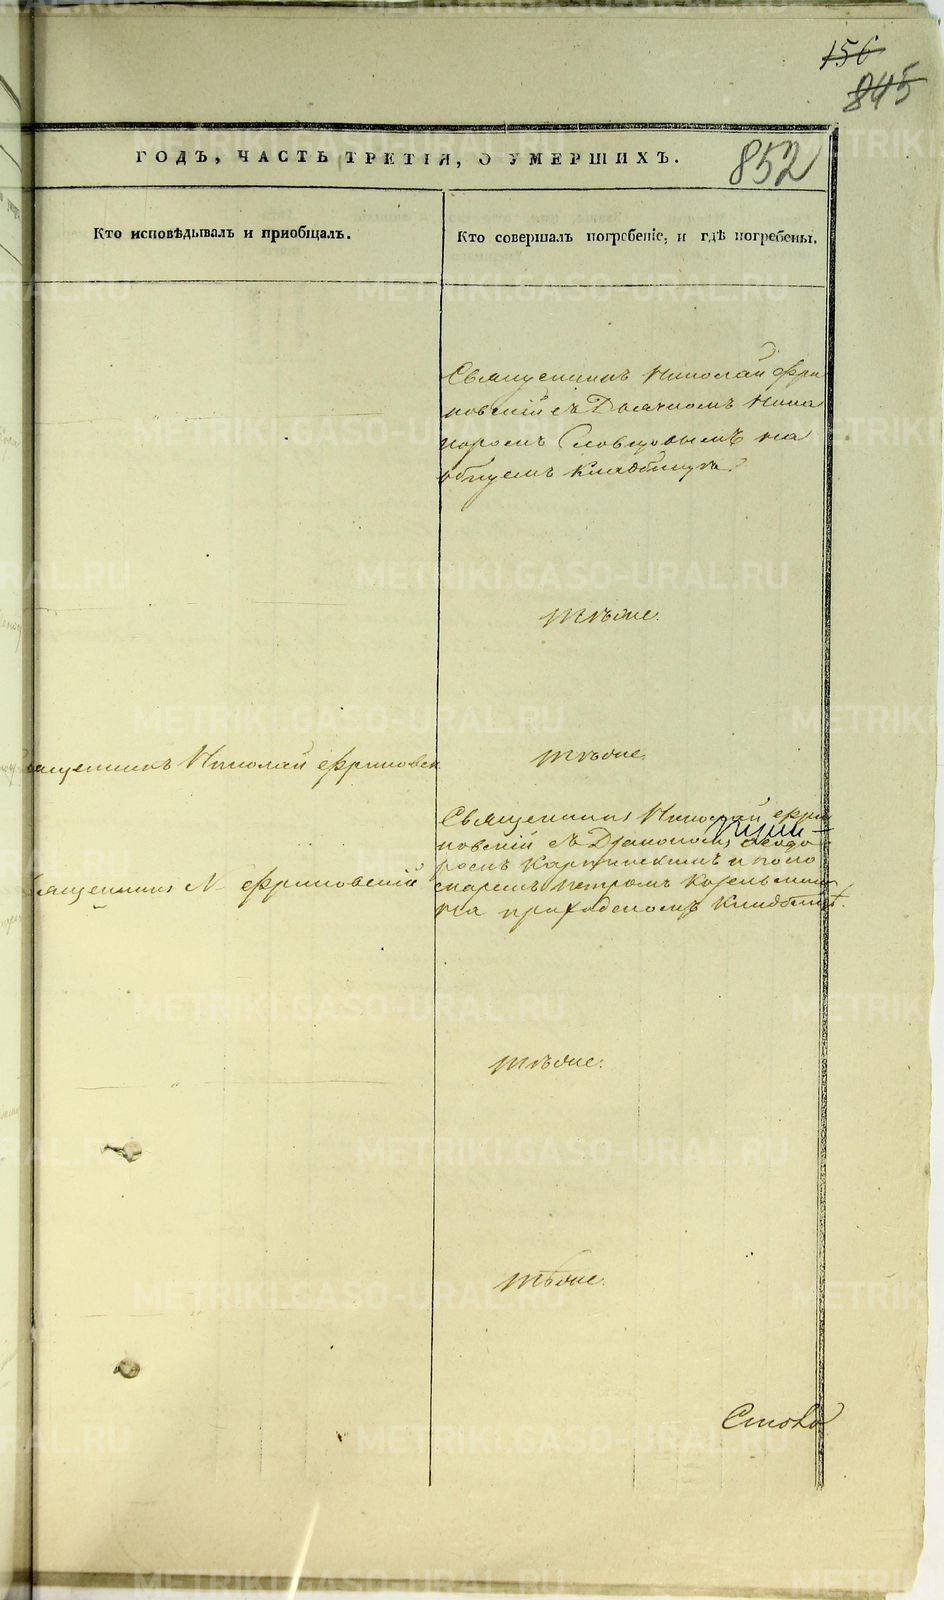 156
845
852
ГОДЪ, ЧАСТЬ ТРЕТІЯ, О УМЕРШИХЪ.
Кто исповѣдывалъ и пріобщалъ.
Кто совершалъ погребеніе, и гдѣ погребены.
Священникъ Николай Фри
новскій съ Дьячкомъ Ника
норомъ Словцовымъ на
общемъ кладбищѣ
тѣ же.
ященникъ Николай Фриновск
тѣ же.
Священникъ Николай Фри
новскій съ Дьякономъ Феодо
ромъ Карпинскимъ и поно
маремъ Петромъ
на приходскомъ кладбищѣ.
ященникъ Н. Фриновскій
тѣ же.
тѣ же.
METRIKI.GASO-URAL.RU